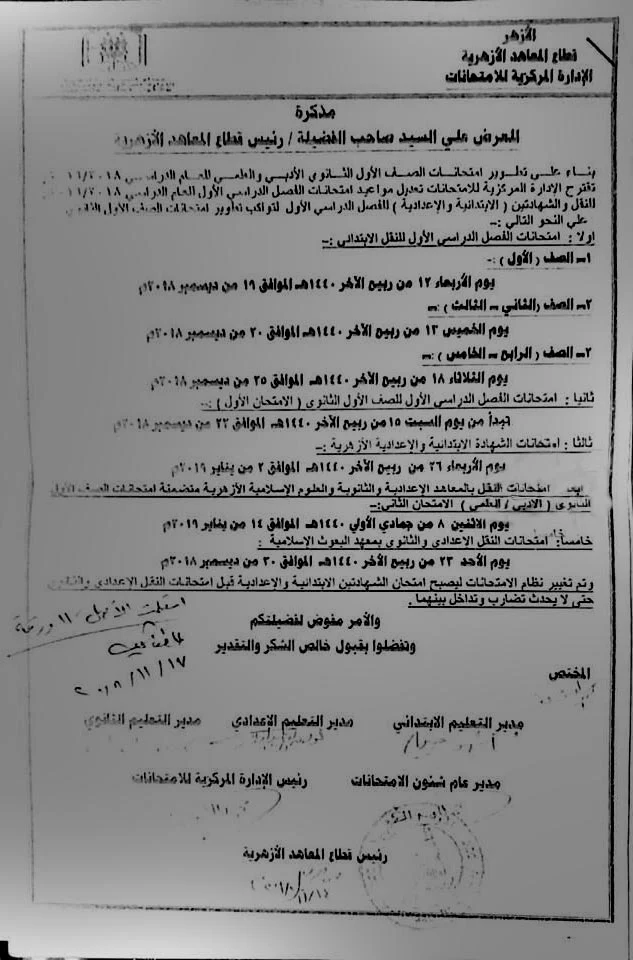 الأزهر
قطاع المعاهد الأزهرية
الإدارة المركزية للامتحانات
مذكرة
للعرض علي السيد صاحب الفضيلة / رئيس قطاع المعاهد الأزهرية
بناء على تطوير امتحانات الصف الأول الثانوي الأدبي والعلمي للعام الدراسي ٢٠١٨/
تقترح الإدارة المركزية للامتحانات تعديل مواعيد امتحانات الفصل الدراسي الأول للعام الدراسي ٢٠١٨/
للنقل والشهادتين ( الابتدائية والإعدادية ) للفصل الدراسي الأول لتواكب تطوير امتحانات الصف الأول الثانوي
علي النحو التالي :-
اولا : امتحانات الفصل الدراسي الأول للنقل الابتدائى :-
١- الصف ( الأول ) :-
يوم الأربعاء ١٢ من ربيع الآخر ١٤٤٠هـ الموافق ١٩ من ديسمبر ٢٠١٨م
٢- الصف (الثاني - الثالث ) :-
يوم الخميس ١٣ من ربيع الآخر ١٤٤٠هـ الموافق ٢٠ من ديسمبر ٢٠١٨م
٣- الصف ( الرابع - الخامس ) :-
يوم الثلاثاء ١٨ من ربيع الآخر ١٤٤٠هـ الموافق ٢٥ من ديسمبر ٢٠١٨م
ثانيا : امتحانات الفصل الدراسي الأول للصف الأول الثانوى ( الامتحان الأول ) :-
تبدأ من يوم السبت ١٥ من ربيع الآخر ١٤٤٠هـ الموافق ٢٢ من ديسمبر ٢٠١٨م
ثالثا : امتحانات الشهادة الابتدائية والإعدادية الأزهرية :-
يوم الأربعاء ٢٦ من ربيع الآخر ١٤٤٠هـ الموافق ٢ من يناير ٢٠١٩م
امتحانات النقل بالمعاهد الإعدادية والثانوية والعلوم الإسلامية الأزهرية متضمنة امتحانات الصف الأول
الثانوى ( الأدبى / العلمي ) الامتحان الثانى :-
يوم الاثنين ٨ من جمادي الأولي ١٤٤٠هـ الموافق ١٤ من يناير ٢٠١٩م
خامساً : امتحانات النقل الإعدادى والثانوى بمعهد البعوث الإسلامية :
يوم الأحد ٢٣ من ربيع الآخر ١٤٤٠هـ الموافق ٣٠ من ديسمبر ٢٠١٨م
وتم تغيير نظام الامتحانات ليصبح امتحان الشهادتين الابتدائية والإعدادية قبل امتحانات النقل الإعدادى والثانوى
حتى لا يحدث تضارب وتداخل بينهما .
والأمر مفوض لفضيلتكم
وتفضلوا بقبول خالص الشكر والتقدير
٢٠١٨/١١/١٧
المختص
مدير التعليم الابتدائي مدير التعليم الإعدادي مدير التعليم الثانوي
مدير عام شئون الامتحانات رئيس الإدارة المركزية للامتحانات
رئيس قطاع المعاهد الأزهرية